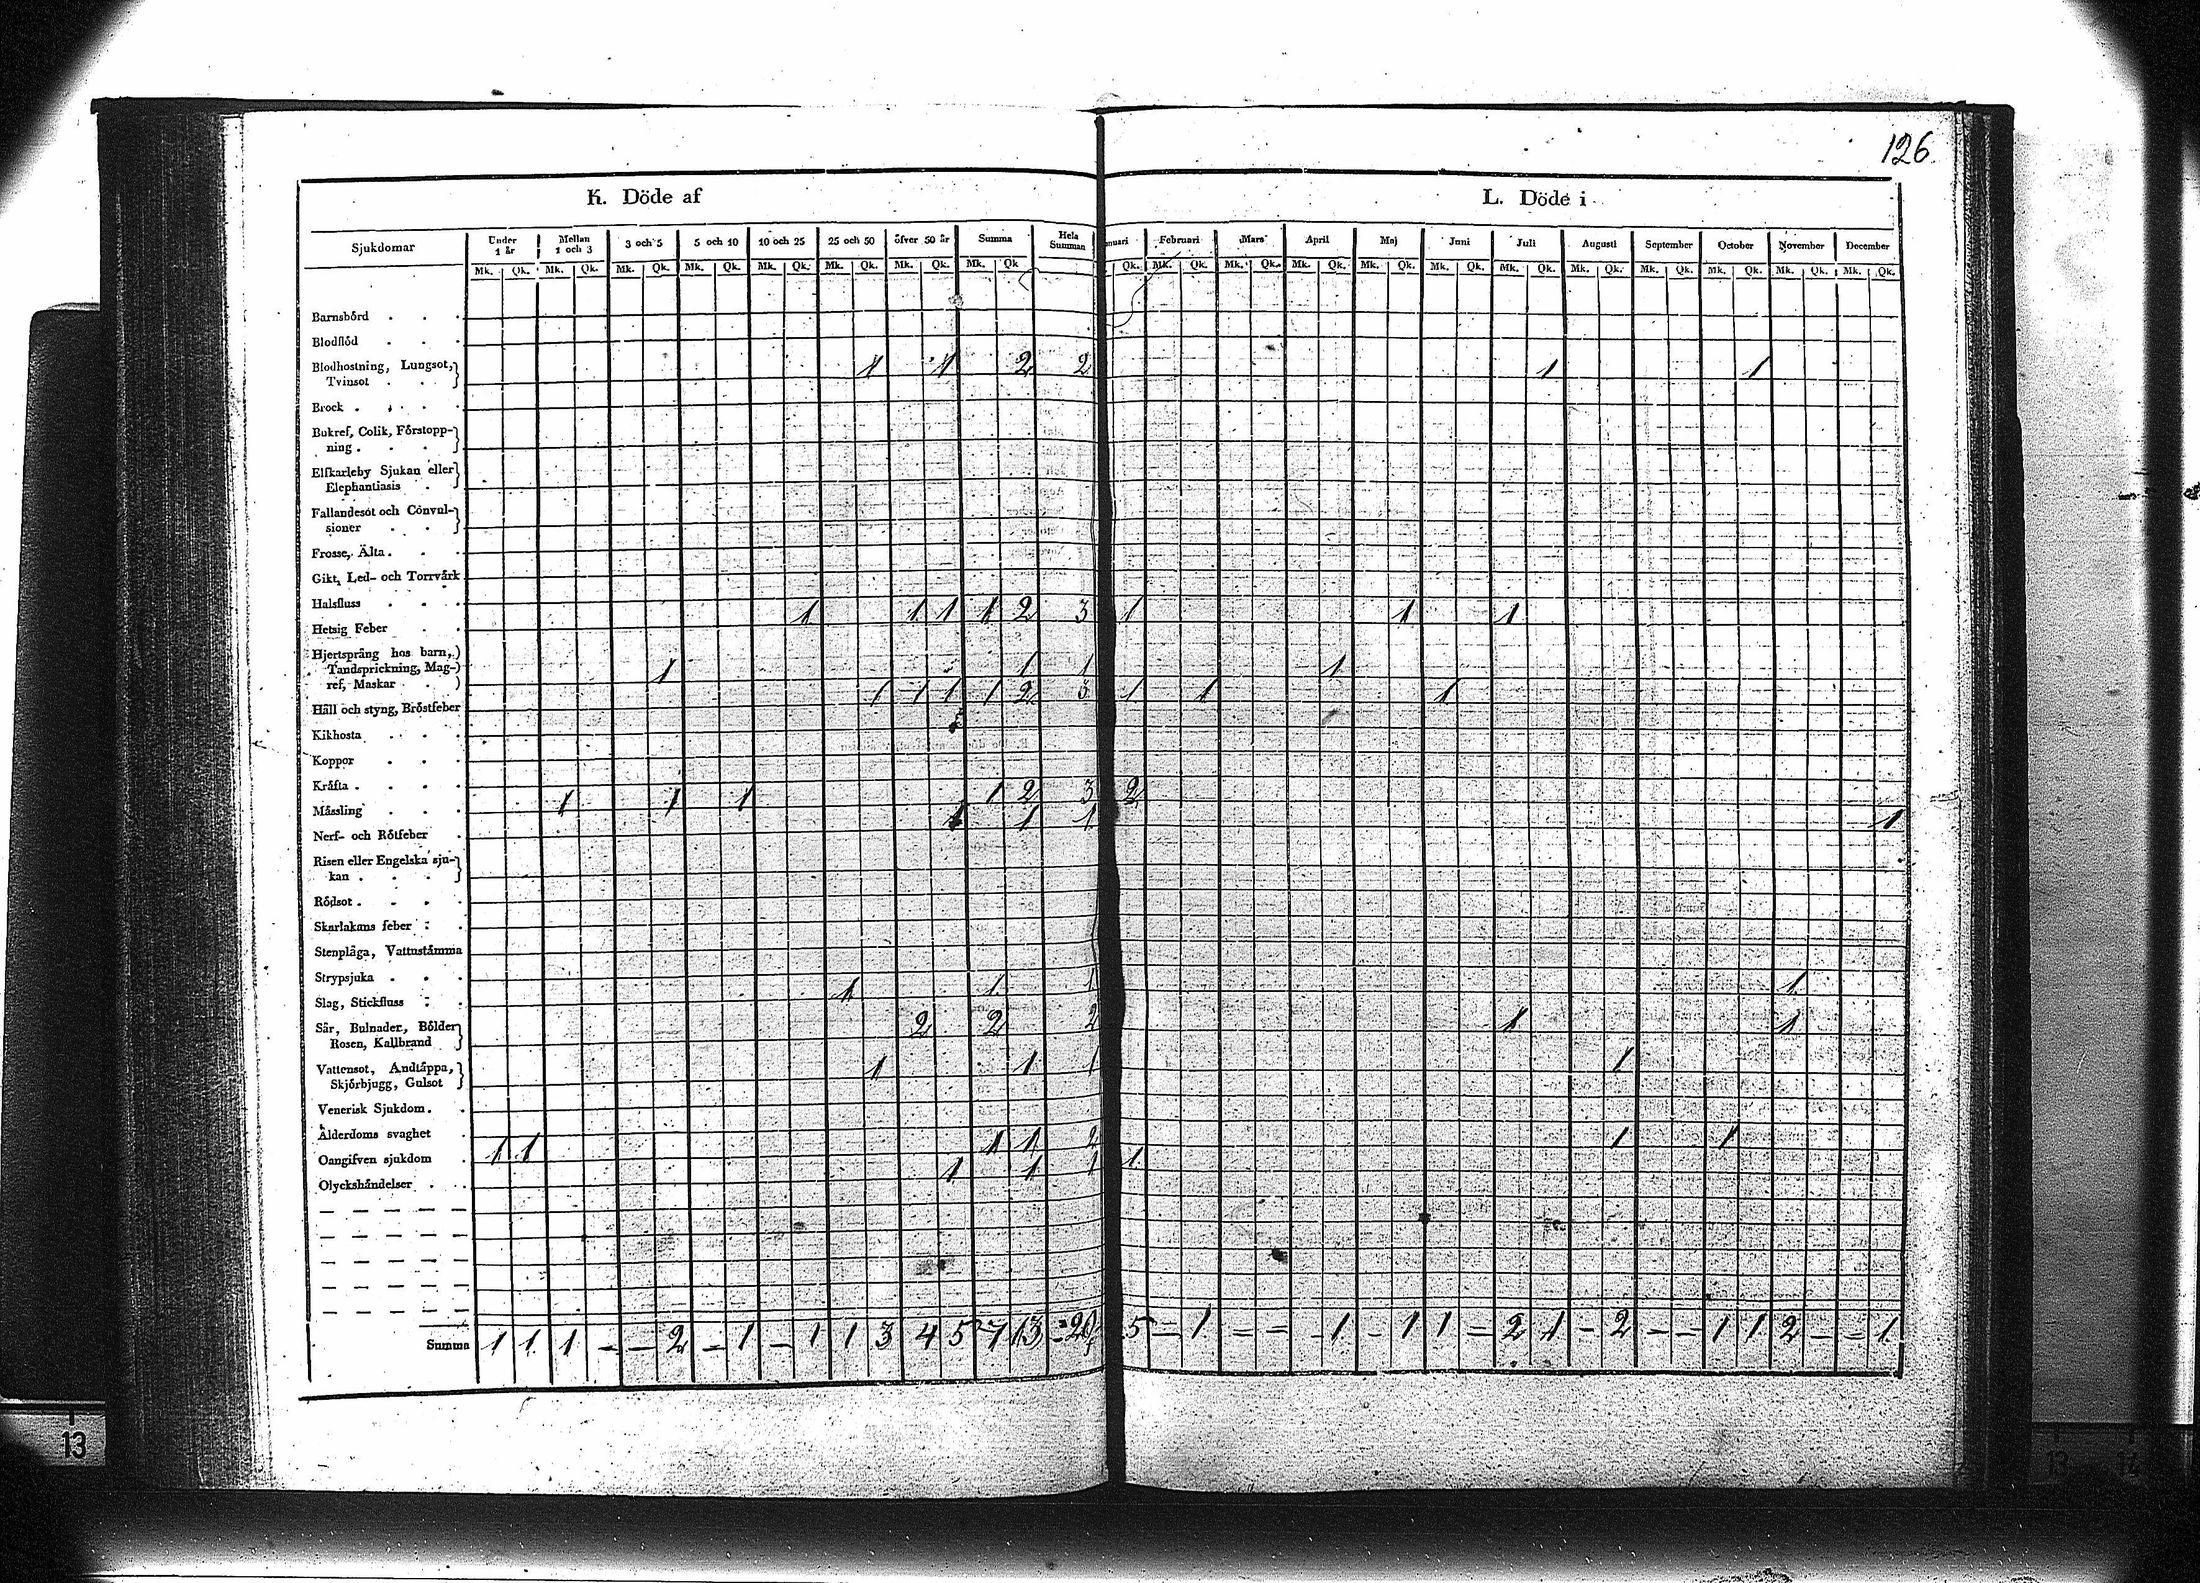 126.
K. Döde af L. Döde i
Sjukdomar Under 1 år Mellan 1 och 3 3 och 5 5 och 10 10 och 25 25 och 50 öfver 50 år Summa Hela Summan nuari Februari Mars April Maj Juni Juli Augusti September October November December
Mk. Qk. Mk. Qk. Mk. Qk. Mk. Qk. Mk. Qk. Mk. Qk. Mk. Qk. Mk. Qk Qk. Mk. Qk. Mk. Qk. Mk. Qk. Mk. Qk. Mk. Qk. Mk. Qk. Mk. Qk. Mk. Qk. Mk. Qk. Mk. Qk. Mk. Qk.
Barnsbörd
Blodflöd
Blodhostning, Lungsot, 1 1 2 2 1 1
Tvinsot
Brock
Bukref, Colik, Förstopp-
ning
Elfkarleby Sjukan eller
Elephantiasis
Fallandesot och Convul-
sioner
Frosse, Älta
Gikt, Led- och Torrvärk
Halsfluss
Hetsig Feber 1 1 1 1 2 3 1 1 1
Hjertsprång hos barn,
Tandsprickning, Mag-
ref, Maskar 1 1 1 1
Håll och styng, Bröstfeber 1 1 1 1 2 3 1 1 1
Kikhosta
Koppor
Kräfta
Mässling 1 1 1 1 2 3 2
Nerf- och Rötfeber 1 1 1 1
Risen eller Engelska sju-
kan
Rödsot
Skarlakans feber
Stenplåga, Vattustämma
Strypsjuka
Slag, Stickfluss 1 1 1 1
Sår, Bulnader, Bölder 2 2 2 1 1
Rosen, Kallbrand
Vattensot, Andtäppa, 1 1 1 1
Skjörbjugg, Gulsot
Venerisk Sjukdom
Ålderdoms svaghet
Oangifven sjukdom 1 1 1 1 2 1 1
Olyckshändelser 1 1 1 1
Summa 1 1 1 – – 2 – 1 – 1 1 3 4 5 7 13 =20 5 – 1 – – – 1 – 1 1 – 2 1 – 2 – – 1 1 2 – – 1
13
13 14